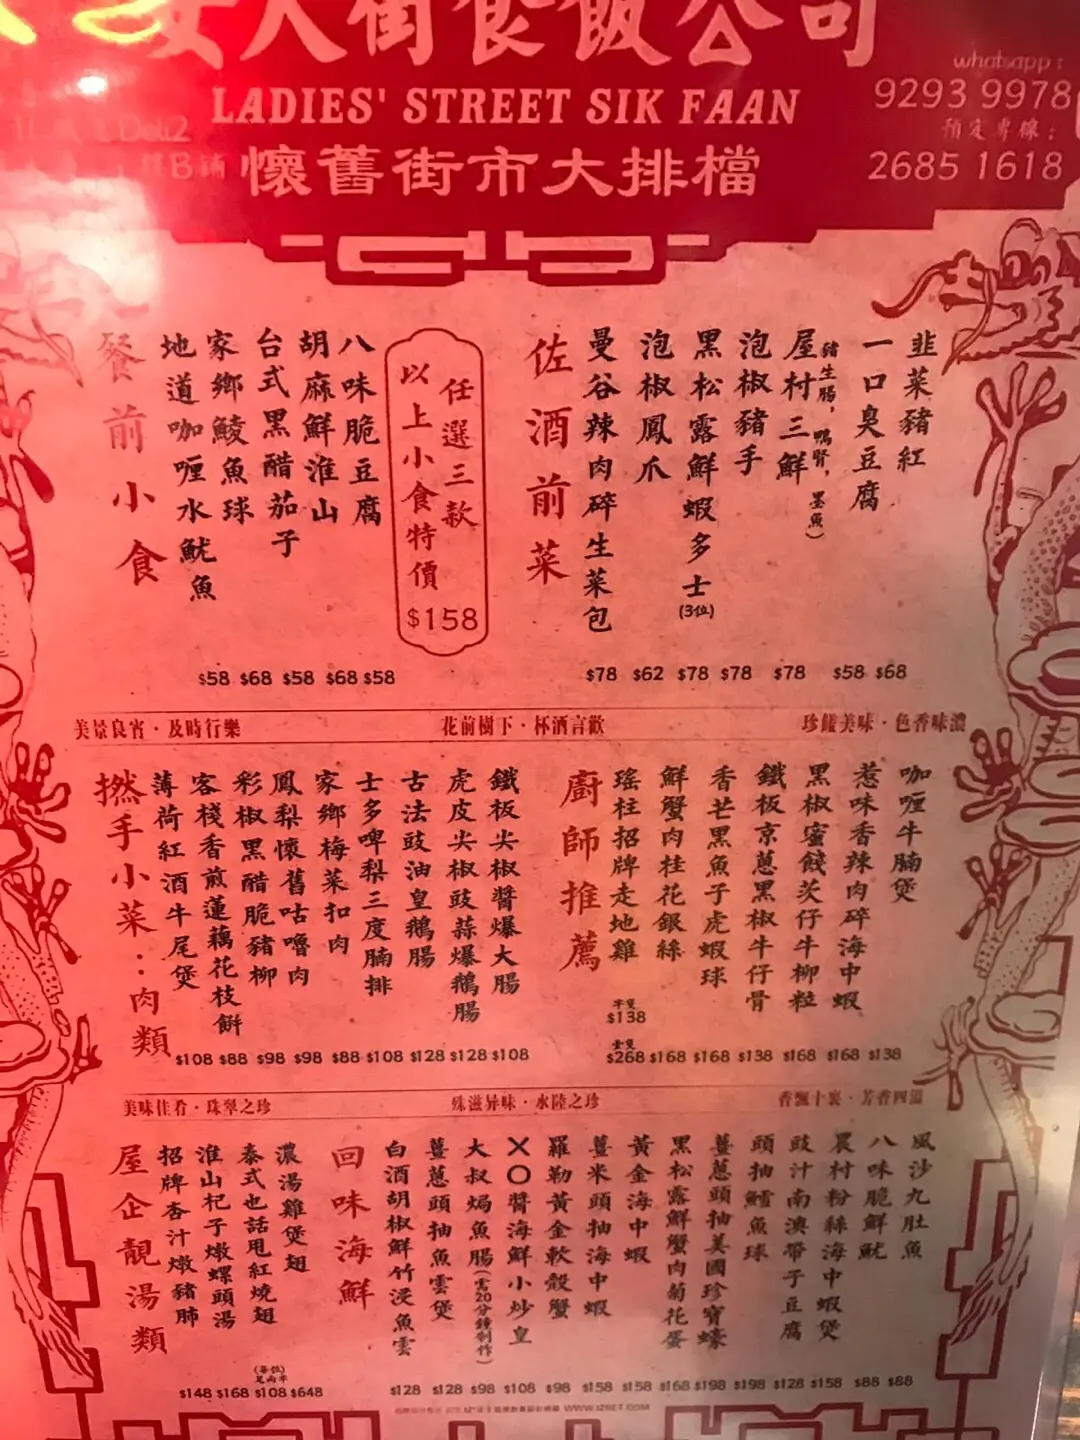 女人街食飯公司
LADIES' STREET SIK FAAN
懷舊街市大排檔
whatsapp:
9293 9978
預定專線:
2685 1618
餐前小食
地道咖喱水魷魚
家鄉鯪魚球
台式黑醋茄子
胡麻鮮淮山
八味脆豆腐
$58 $68 $58 $68 $58
以上小食特價
任選三款
$158
佐酒前菜
曼谷辣肉碎生菜包
泡椒鳳爪
黑松露鮮蝦多士(3位)
泡椒豬手
屋村三鮮
(豬生腸,鴨腎,墨魚)
一口臭豆腐
韭菜豬紅
$78 $62 $78 $78 $78 $58 $68
美景良宵·及時行樂
花前樹下·杯酒言歡
珍饈美味·色香味濃
撚手小菜:肉類
薄荷紅酒牛尾煲
客棧香煎蓮藕花枝餅
彩椒黑醋脆豬柳
鳳梨懷舊咕嚕肉
家鄉梅菜扣肉
士多啤梨三度腩排
古法豉油皇鵝腸
虎皮尖椒豉蒜爆鵝腸
鐵板尖椒醬爆大腸
$108 $88 $98 $98 $88 $108 $128 $128 $108
廚師推薦
瑤柱招牌走地雞
鮮蟹肉桂花銀絲
香芒黑魚子虎蝦球
鐵板京蔥黑椒牛仔骨
黑椒蜜餞茨仔牛柳粒
惹味香辣肉碎海中蝦
咖喱牛腩煲
半隻
$138
全隻
$268 $168 $168 $138 $168 $168 $138
美味佳肴·珠翠之珍
殊滋异味·水陸之珍
香飄十裏·芳香四溢
屋企靚湯類
招牌杏汁燉豬肺
淮山杞子燉螺頭湯
泰式也話甩紅燒翅
濃湯雞煲翅
(每位)
$148 $168 $108 $648
回味海鮮
白酒胡椒鮮竹浸魚雲
薑蔥頭抽魚雲煲
大叔焗魚腸(需20分鐘制作)
XO醬海鮮小炒皇
羅勒黃金軟殼蟹
薑米頭抽海中蝦
黃金海中蝦
黑松露鮮蟹肉菊花蛋
薑蔥頭抽美國珍寶蠔
頭抽鱸魚球
豉汁南澳帶子豆腐
農村粉絲海中蝦煲
八味脆鮮魷
風沙九肚魚
$128 $128 $98 $108 $98 $158 $158 $168 $198 $198 $128 $158 $88 $88